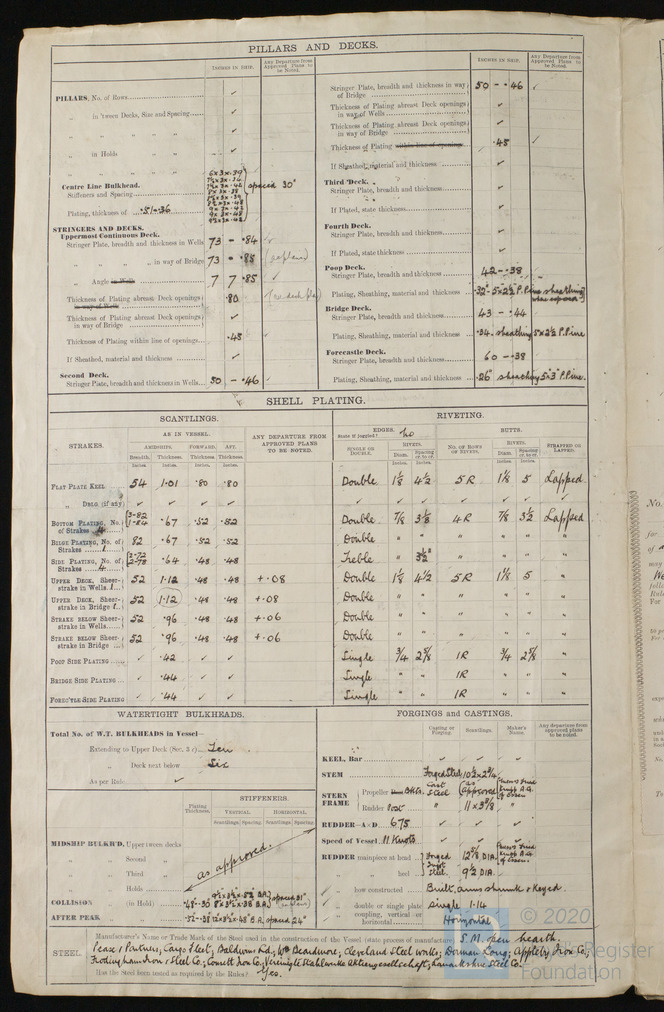 PILLARS AND DECKS.
INCHES IN SHIP.
Any Departure from Approved Plans to be Noted.
PILLARS, No. of Rows ✓
„ in 'tween Decks, Size and Spacing ✓
„ „ „ „ ✓
„ in Holds „ „ ✓
„ „ „ „ ✓
Centre Line Bulkhead.
Stiffeners and Spacing spaced 30"
Plating, thickness of .51-.36
STRINGERS AND DECKS.
Uppermost Continuous Deck.
Stringer Plate, breadth and thickness in Wells 73 - .84
„ „ „ „ in way of Bridge 73 - .88
„ Angle in Wells 7 7 .85 ✓
Thickness of Plating abreast Deck openings in way of Wells .80
Thickness of Plating abreast Deck openings in way of Bridge ✓
Thickness of Plating within line of openings .48
If Sheathed, material and thickness ✓
Second Deck.
Stringer Plate, breadth and thickness in Wells 50 - .46 ✓
INCHES IN SHIP.
Any Departure from Approved Plans to be Noted.
Stringer Plate, breadth and thickness in way of Bridge 50 - .46 ✓
Thickness of Plating abreast Deck openings in way of Wells ✓
Thickness of Plating abreast Deck openings in way of Bridge ✓
Thickness of Plating within line of openings .48 ✓
If Sheathed, material and thickness ✓
Third Deck.
Stringer Plate, breadth and thickness ✓
If Plated, state thickness ✓
Fourth Deck.
Stringer Plate, breadth and thickness ✓
If Plated, state thickness ✓
Poop Deck.
Stringer Plate, breadth and thickness 42 - .38
Plating, Sheathing, material and thickness .32" 5x2½ P. Pine sheathing
Bridge Deck.
Stringer Plate, breadth and thickness 43 - .44
Plating, Sheathing, material and thickness .34 sheathing 5x2½ P. Pine
Forecastle Deck.
Stringer Plate, breadth and thickness 60 - .38
Plating, Sheathing, material and thickness .26" sheathing 5x3" P. Pine.
SHELL PLATING.
SCANTLINGS.
RIVETING.
STRAKES.
AS IN VESSEL.
AMIDSHIPS. FORWARD. AFT.
Breadth. Thickness. Thickness. Thickness.
Inches. Inches. Inches. Inches.
ANY DEPARTURE FROM APPROVED PLANS TO BE NOTED.
EDGES.
State if joggled? no
SINGLE OR DOUBLE.
RIVETS.
Diam. Spacing cr. to cr.
Inches. Inches.
BUTTS.
No. OF ROWS OF RIVETS.
RIVETS.
Diam. Spacing cr. to cr.
Inches. Inches.
STRAPPED OR LAPPED.
FLAT PLATE KEEL 54 1.01 .80 .80 Double 1⅛ 4½ 5R 1⅛ 5 Lapped
„ DBLG. (if any) ✓ ✓ ✓ ✓ ✓ ✓ ✓ ✓ ✓ ✓ ✓
BOTTOM PLATING, No. of Strakes 4 3-82 1-84 .67 .52 .82 Double ⅞ 3⅛ 4R ⅞ 3½ Lapped
BILGE PLATING, No. of Strakes 1 82 .67 .52 .52 Double „ „ „ „ „ „
SIDE PLATING, No. of Strakes 4 .64 .48 .48 Treble „ 3½ „ „ „ „
UPPER DECK, Sheer-strake in Wells 1 52 1.12 .48 .48 +.08 Double 1⅛ 4½ 5R 1⅛ 5 „
UPPER DECK, Sheer-strake in Bridge 1 52 1.12 .48 .48 +.08 Double „ „ „ „ „ „
STRAKE BELOW Sheer-strake in Wells 52 .96 .48 .48 +.06 Double „ „ „ „ „ „
STRAKE BELOW Sheer-strake in Bridge 52 .96 .48 .48 +.06 Double „ „ „ „ „ „
POOP SIDE PLATING ✓ .42 ✓ ✓ Single ¾ 2⅝ 1R ¾ 2⅝ „
BRIDGE SIDE PLATING ✓ .44 ✓ ✓ Single „ „ 1R „ „ „
FOREC'TLE SIDE PLATING ✓ .44 ✓ ✓ Single „ „ 1R „ „ „
WATERTIGHT BULKHEADS.
Total No. of W.T. BULKHEADS in Vessel—
Extending to Upper Deck (Sec. 3 c) Ten
„ Deck next below Six
As per Rule ✓
Plating Thickness.
STIFFENERS.
VERTICAL. HORIZONTAL.
Scantlings. Spacing. Scantlings. Spacing.
MIDSHIP BULKH'D, Upper tween decks
„ „ Second „
„ „ Third „
„ „ Holds
as approved.
COLLISION „ (in Hold) .48-.30 spaced 31"
AFTER PEAK „ „ .52-.38 spaced 24"
FORGINGS and CASTINGS.
Casting or Forging. Scantlings. Maker's Name. Any departure from approved plans to be noted.
KEEL, Bar ✓ ✓ ✓
STEM Forged Steel 10½x2¾
STERN FRAME
Propeller Cast Steel (as approved)
Rudder Post „ 11x3⅝
RUDDER—A×D 675 ✓ ✓ ✓
Speed of Vessel 11 Knots ✓ ✓
RUDDER mainpiece at head Forged 12⅝ DIA.
„ „ heel Steel 9½ DIA.
„ how constructed Built, arms shrunk & Keyed.
„ double or single plate single 1.14
„ coupling, vertical or horizontal Horizontal
STEEL.
Manufacturer's Name or Trade Mark of the Steel used in the construction of the Vessel (state process of manufacture) S.M. open hearth.
Pease & Partners; Cargo Fleet, Baldwins Ld.; Wm Beardmore; Cleveland Steel Works; Dorman Long; Appleby Iron Co;
Frodingham Iron & Steel Co.; Consett Iron Co; Vereinigte Stahlwerke Aktiengesellschaft; Lanarkshire Steel Co.
Has the Steel been tested as required by the Rules? Yes.
© 2020
Register
Foundation